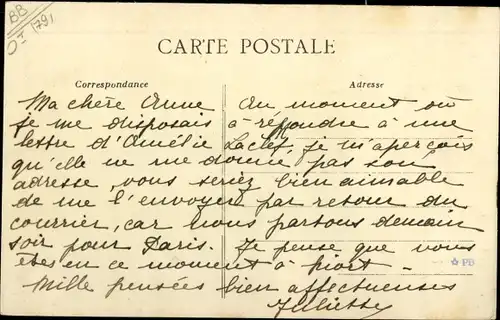 BB
(79)
CARTE POSTALE
Correspondance
Adresse
Ma chère Anne au moment où
je me disposais à répondre à une
lettre d'Amélie Laclef, je m'aperçois
qu'elle ne me donne pas son
adresse, vous seriez bien aimable
de me l'envoyer par retour du
courrier, car nous partons demain
soir pour Paris. Je pense que vous
êtes en ce moment à Niort -
Mille pensées bien affectueuses
Juliette